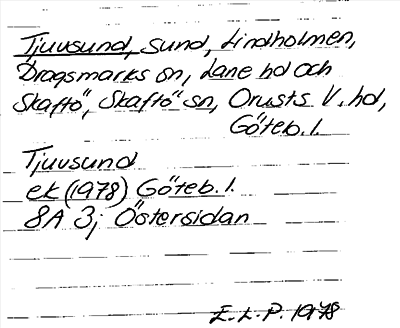 Tjuvsund, sund, Lindholmen,
Dragsmarks sn, Lane hd och
Skaftö, Skaftö sn, Orusts V. hd,
Göteb. l.
Tjuvsund
ek (1978) Göteb. l.
8A 3j Östersidan
E. L. P. 1978